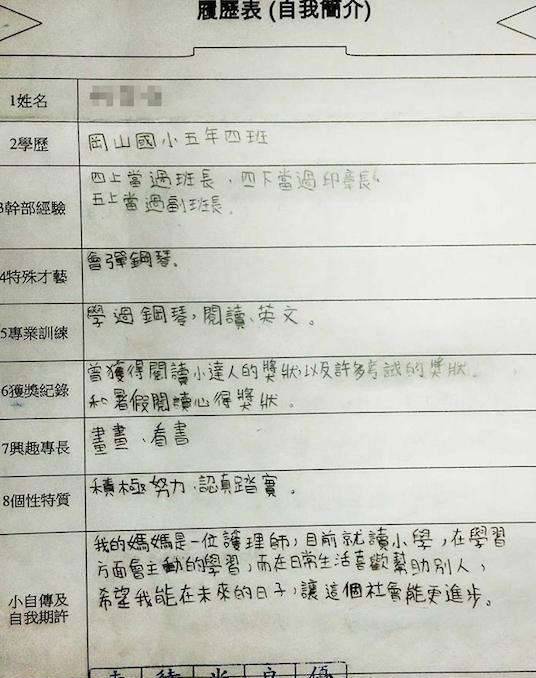 履歷表 (自我簡介)
1姓名
2學歷 岡山國小五年四班
3幹部經驗 四上當過班長、四下當過印章長、
五上當過副班長。
4特殊才藝 會彈鋼琴。
5專業訓練 學過鋼琴,閱讀、英文。
6獲獎紀錄 曾獲得閱讀小達人的獎狀,以及許多考試的獎狀
和暑假閱讀心得獎狀。
7興趣專長 畫畫、看書
8個性特質 積極努力、認真踏實。
小自傳及
自我期許
我的媽媽是一位護理師,目前就讀小學,在學習
方面會主動的學習,而在日常生活喜歡幫助別人,
希望我能在未來的日子,讓這個社會能更進步。